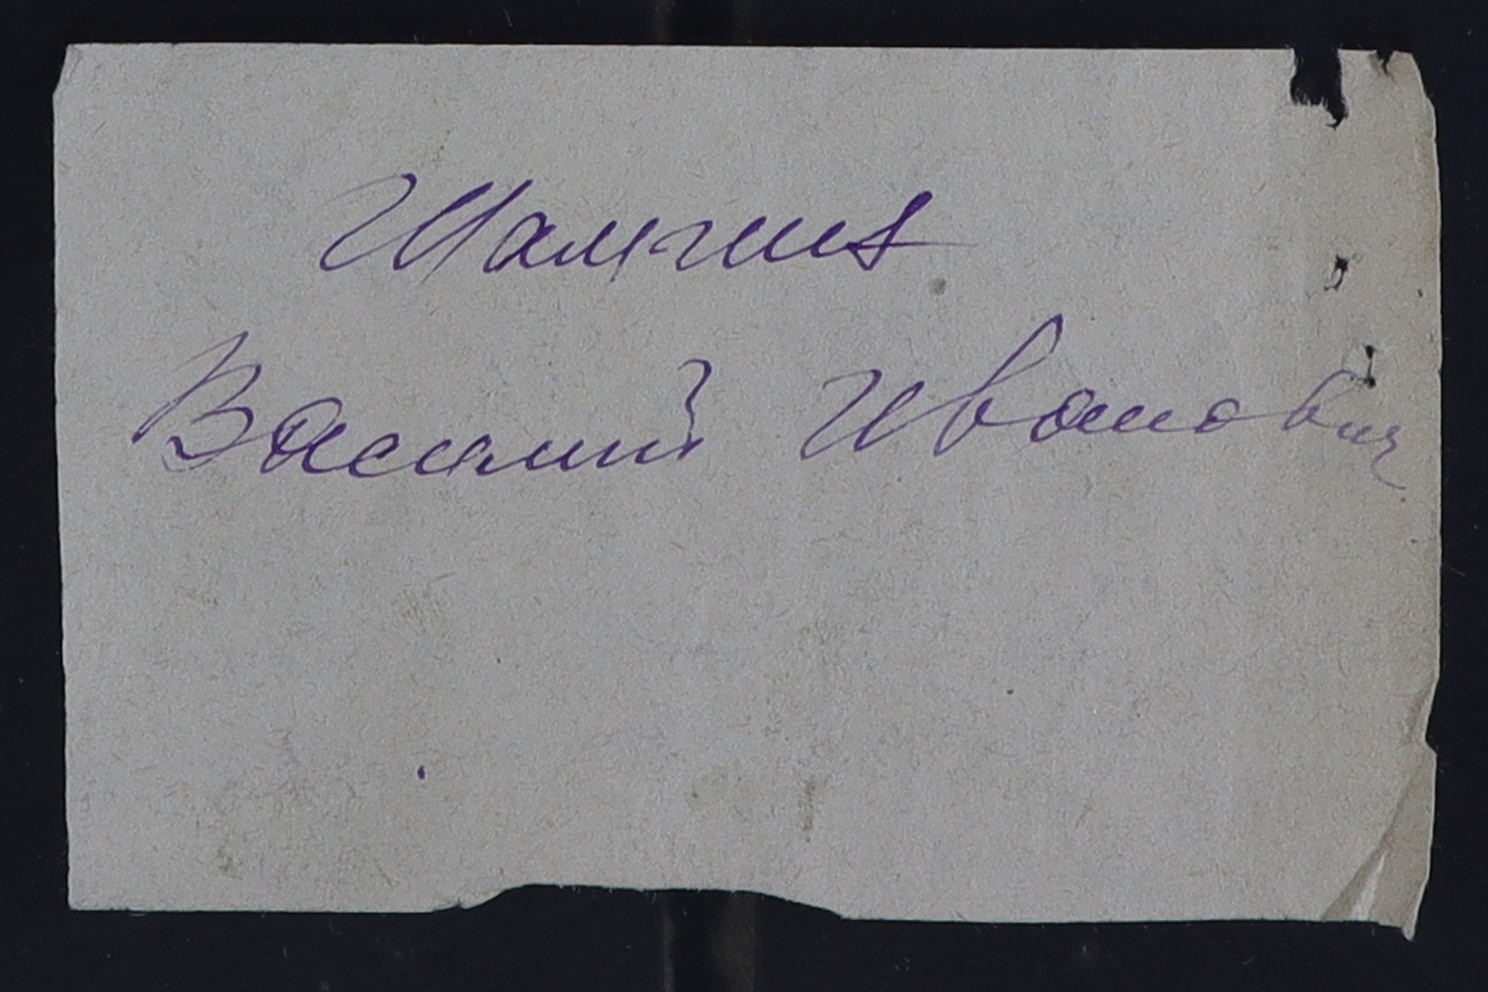 Шамшин
Василий Иванович